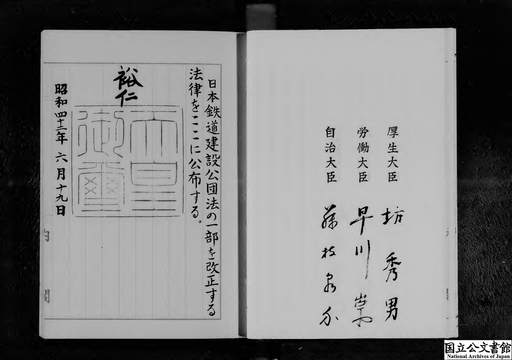 厚生大臣 坊秀男
労働大臣 早川崇
自治大臣 藤枝泉介
日本鉄道建設公団法の一部を改正する
法律をここに公布する。
裕仁
天皇御璽
昭和四十二年六月十九日
国立公文書館
National Archives of Japan